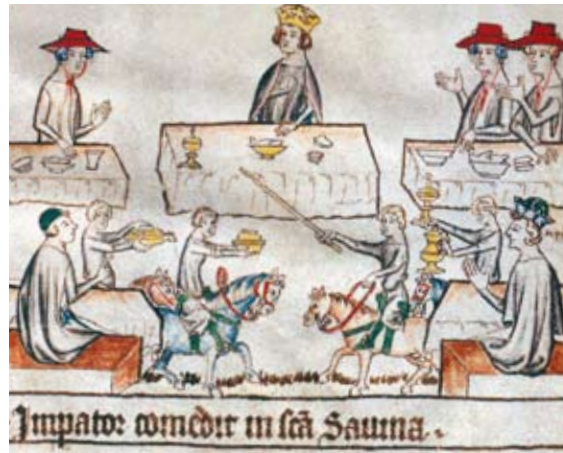 Impator comedit in scā Sauina.